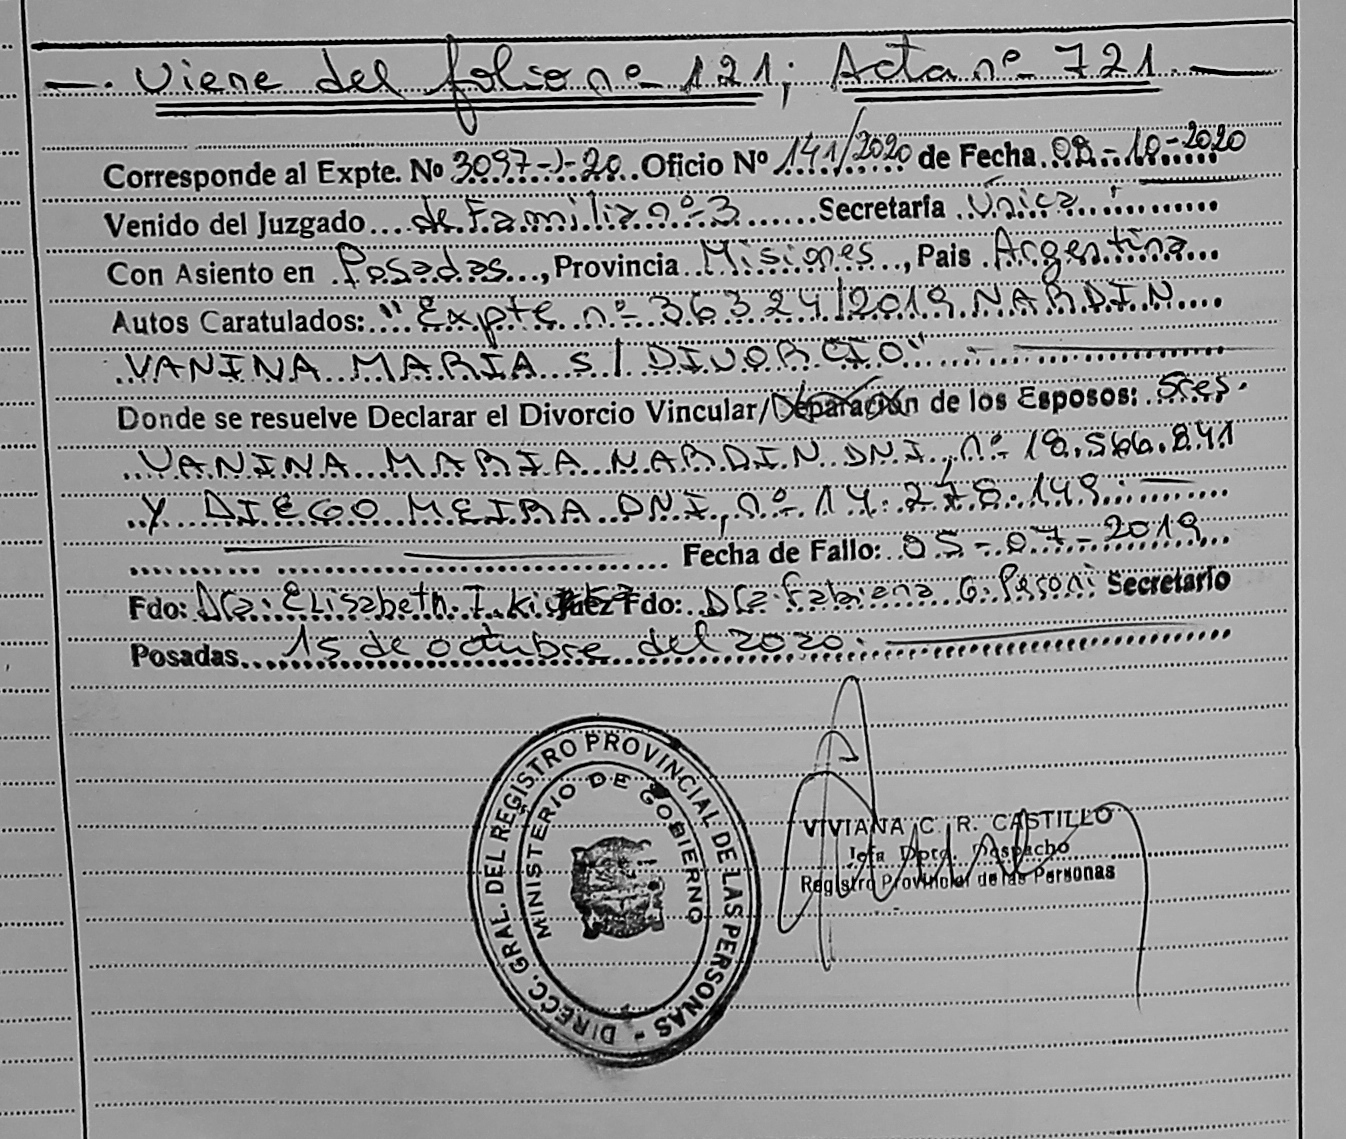 —. Viene del folio nº 121; Acta nº 721. —
Corresponde al Expte. No 3097-J-20. Oficio Nº 141/2020 de Fecha 08-10-2020
Venido del Juzgado de Familia nº 3 Secretaría Única
Con Asiento en Posadas, Provincia Misiones, Pais Argentina
Autos Caratulados: "Expte nº 36324/2019 NARDIN
VANINA MARIA S/ DIVORCIO"
Donde se resuelve Declarar el Divorcio Vincular/Separación de los Esposos: Sres.
VANINA MARIA NARDIN DNI, nº 18.566.841
Y DIEGO MEIRA DNI, nº 14.278.149
Fecha de Fallo: 05-07-2019
Fdo: Dra. Elisabeth I. Juez Fdo: Dra Fabiana G. Secretario
Posadas 15 de octubre del 2020.
DIRECC. GRAL. DEL REGISTRO PROVINCIAL DE LAS PERSONAS -
MINISTERIO DE GOBIERNO
VIVIANA C. R. CASTILLO
Jefa Dpto. Despacho
Registro Provincial de las Personas